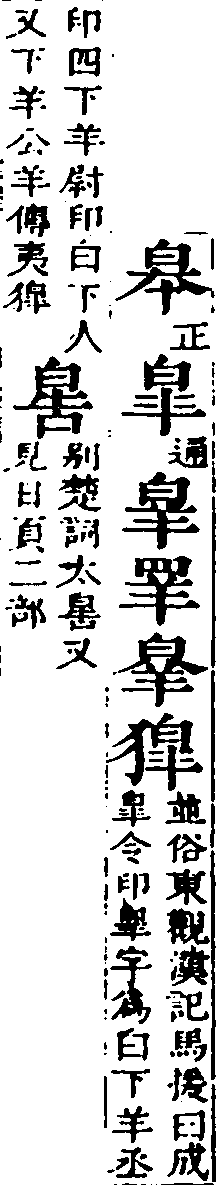 皋
正
皐
通
獋
並俗東觀漢記馬援曰成
皐令印皐字為白下羊丞
印四下羊尉印白下人
又下羊公羊傳夷獋
別楚詞太又
見日頁二部